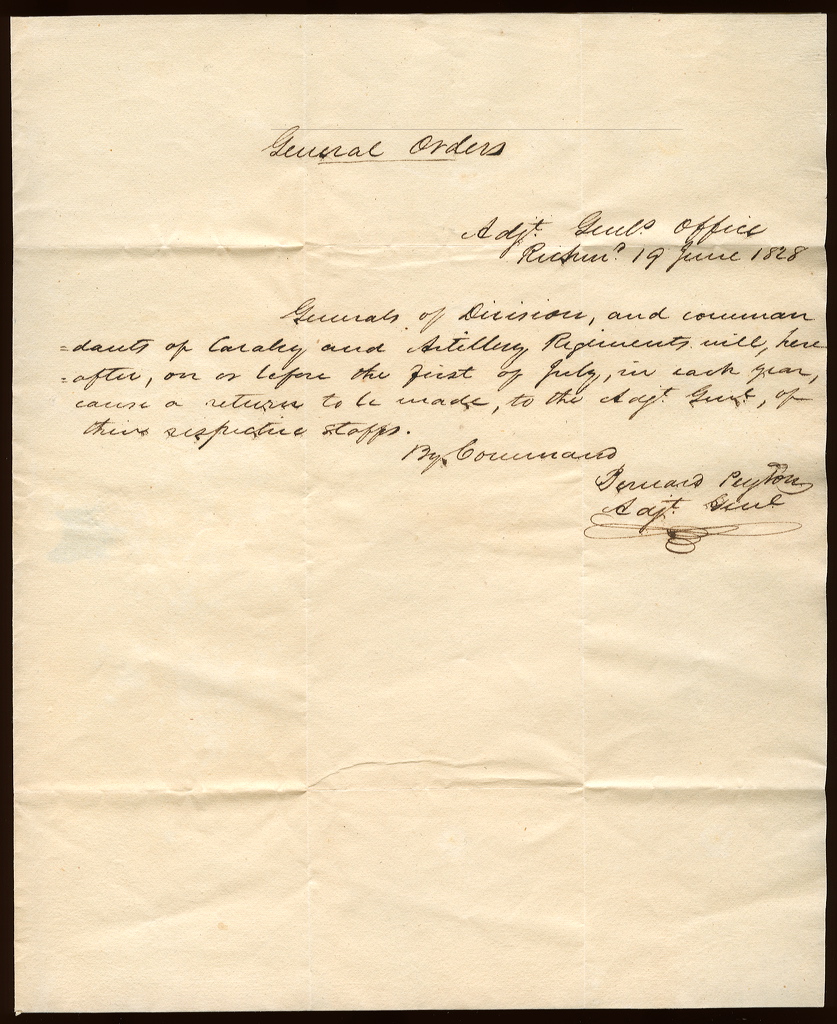 General Orders
Adjt. Genls. Office
Richmd. 19 June 1828
Generals of Division, and comman
=dants of Cavalry and Artillery Regiments will, here
=after, on or before the first of July, in each year,
cause a return to be made, to the Adjt. Genl., of
their respective staffs.
By Command
Bernard Peyton
Adjt. Genl.